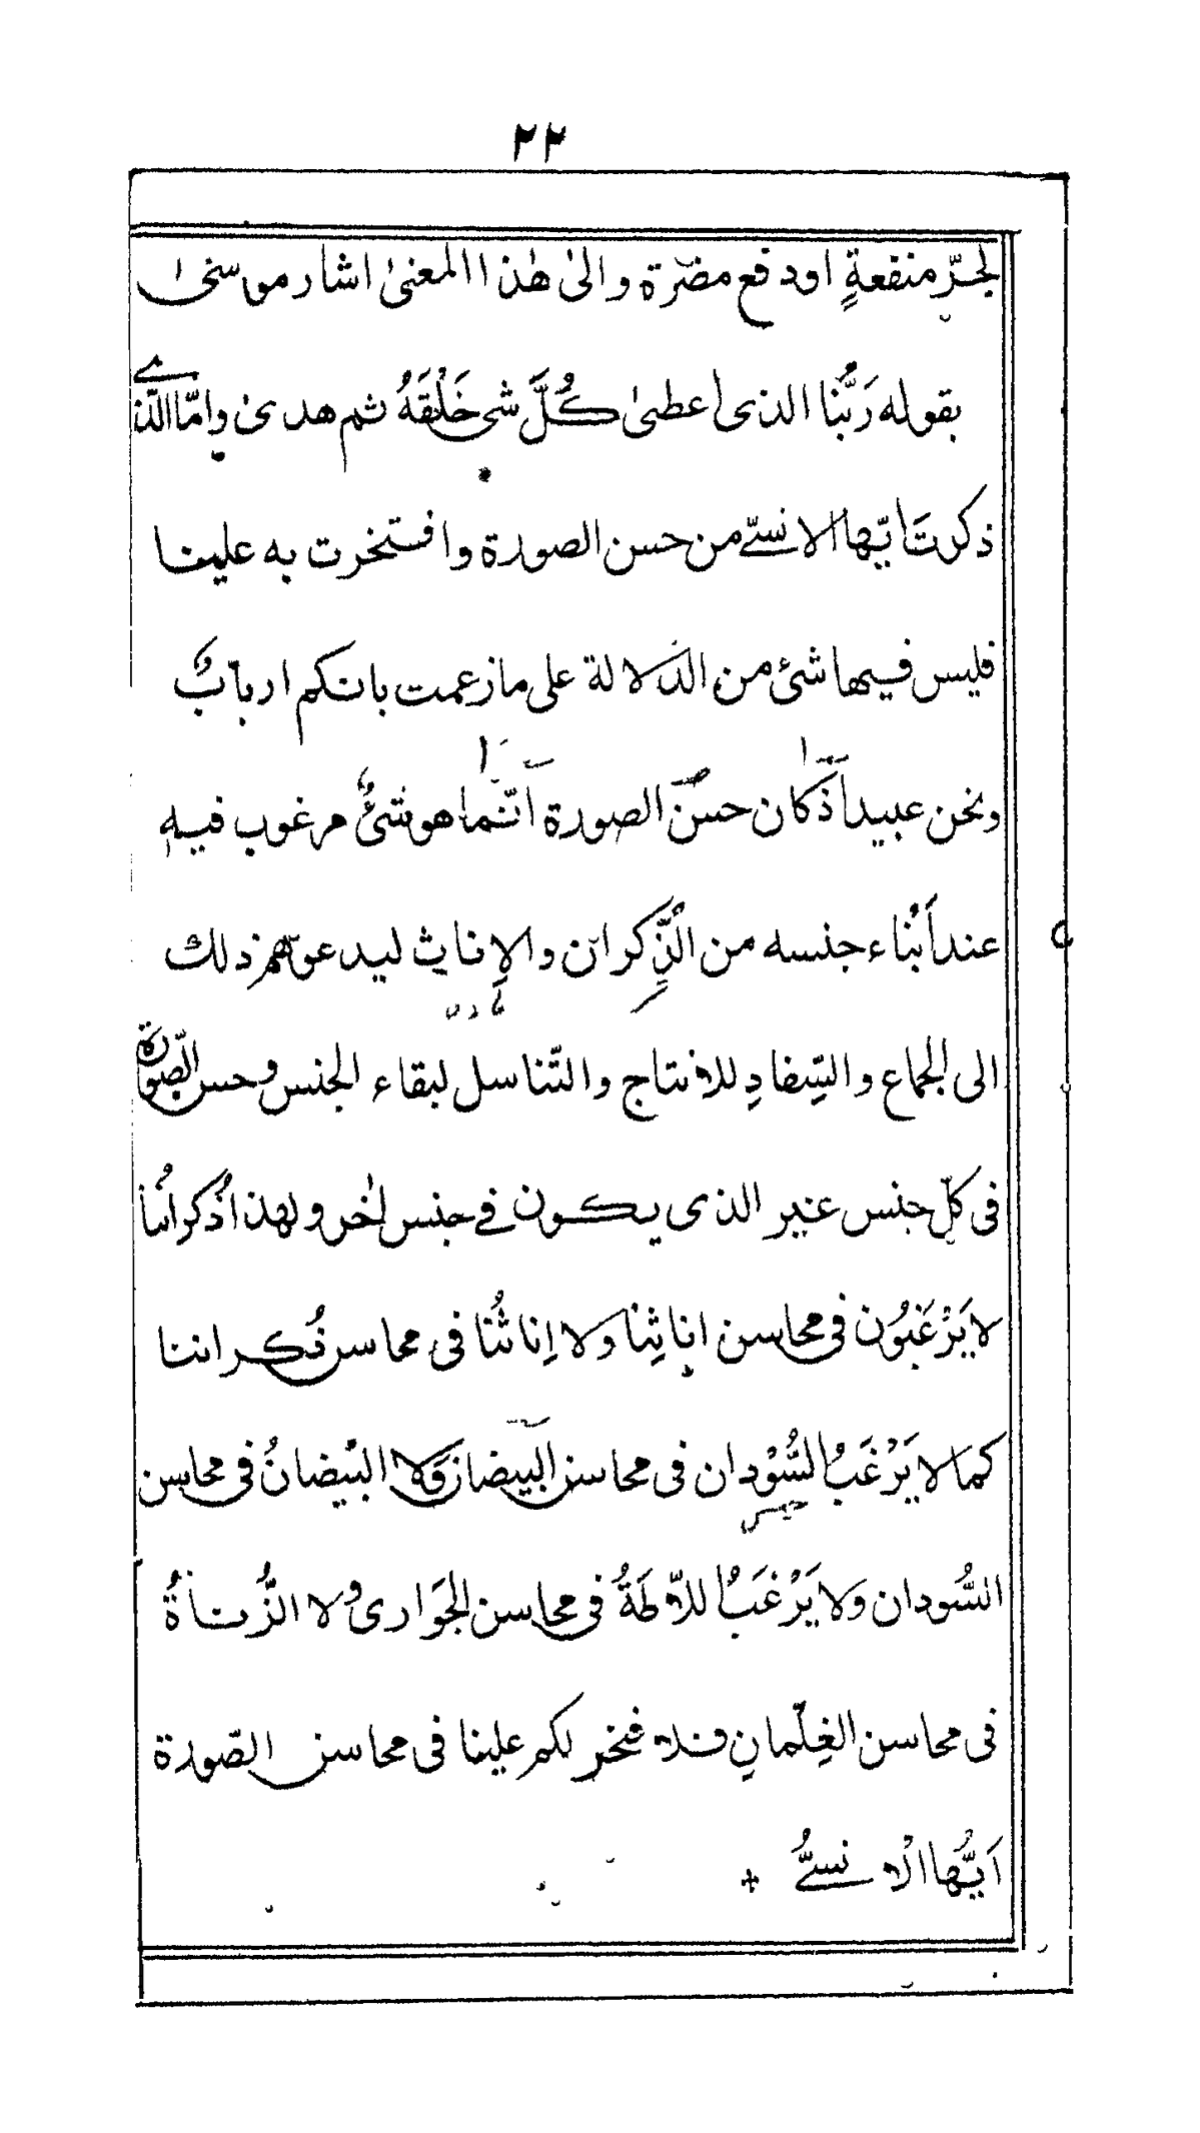 ٢٢
لجرّ منفعةٍ اودفع مضرّة والىٰ هٰذا المعنىٰ اشار موسىٰ
بقوله رَبُّنا الذى اعطىٰ كُلَّ شى خَلْقَهُ ثم هدىٰ وامّا الّذے
ذكرتَ ايّها الانسىّ من حسن الصورة وافتخرت به علينا
فليس فيها شئ من الدّلالة على ما زعمت بانكم اربابٌ
ونحن عبيد اذ كان حسن الصورة انّما هو شئٌ مرغوب فيه
عند اَبْناء جنسه من الذُّكران والاِناث ليدعوهم ذلك
الى الجماع والسِّفادِ للانتاج والتّناسل لبقاء الجنس وحسن الصّورة
فى كلّ جنس غير الذى يكون فى جنس اٰخر ولهذا ذُكراننا
لا يَرْغَبُون فى محاسن اناثِنا ولا اِناثُنا فى محاسن ذُكراننا
كما لا يَرْغَبُ السُّوْدان فى محاسن البيضان ولا البيْضانُ فى محاسن
السُّودان ولا يَرْغَبُ للاّطَةُ فى محاسن الجَوَارى ولا الزُّناةُ
فى محاسن الغِلْمانِ فلا فخر لكم علينا فى محاسن الصّورة
اَيُّها الْانسىُّ +